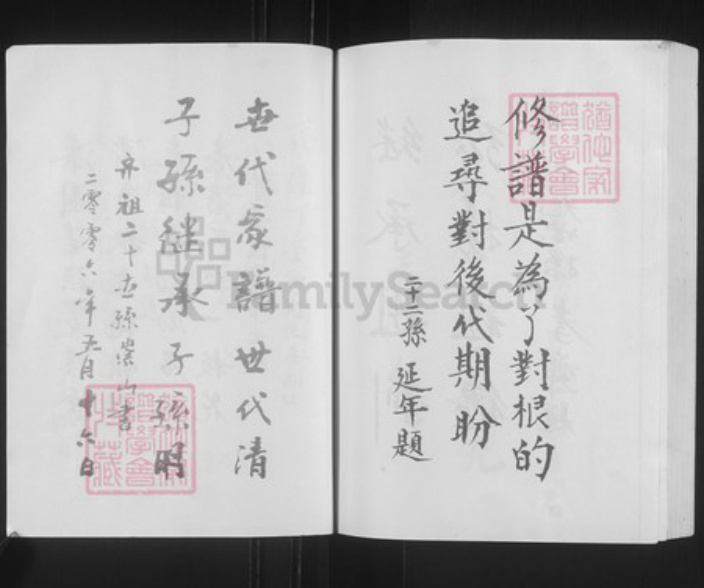 修譜是為了對根的
追尋對後代期盼
二十二孫 延年題
世代家譜世代清
子孫繼承子孫明
齐祖二十世孫崇山書
二零零六年五月十六日
FamilySearch